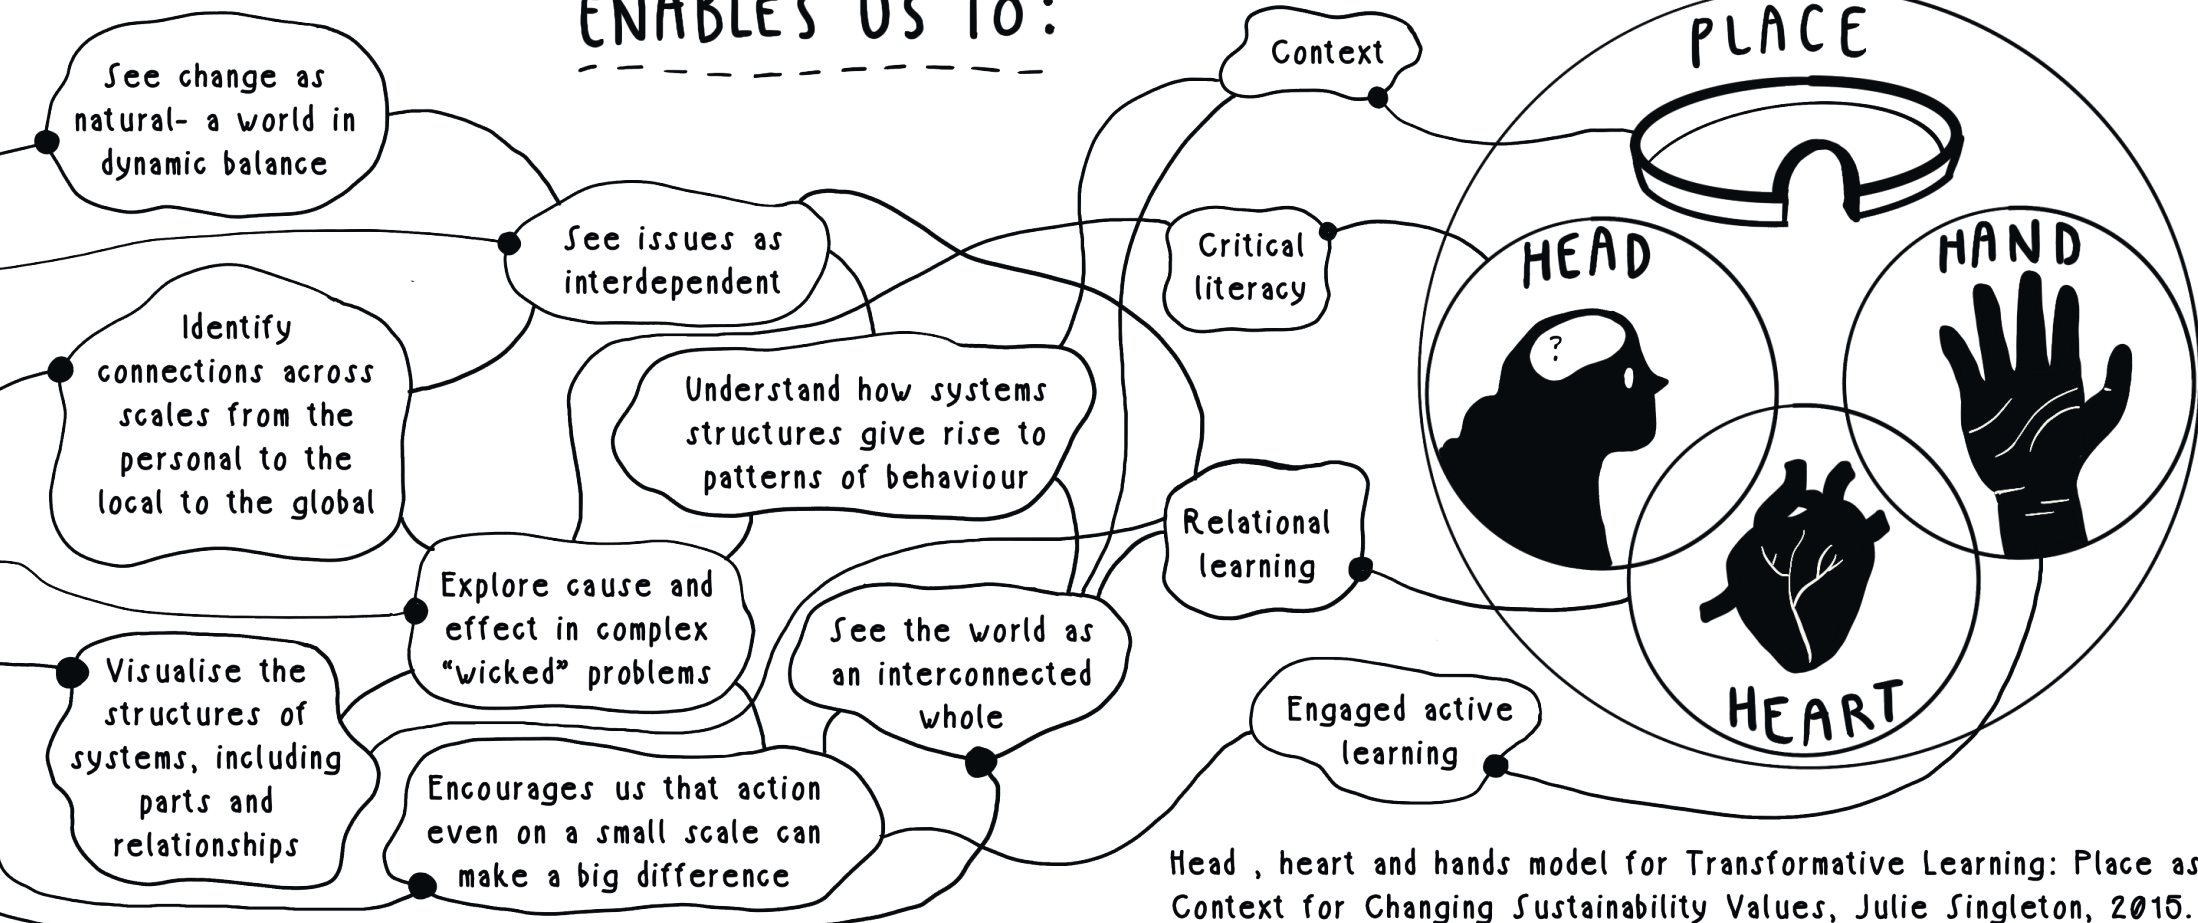 ENABLES US TO:
See change as
natural- a world in
dynamic balance
See issues as
interdependent
Identify
connections across
scales from the
personal to the
local to the global
Understand how systems
structures give rise to
patterns of behaviour
Explore cause and
effect in complex
“wicked” problems
See the world as
an interconnected
whole
Visualise the
structures of
systems, including
parts and
relationships
Encourages us that action
even on a small scale can
make a big difference
Context
Critical
literacy
Relational
learning
Engaged active
learning
PLACE
HEAD
?
HAND
HEART
Head , heart and hands model for Transformative Learning: Place as
Context for Changing Sustainability Values, Julie Singleton, 2015.